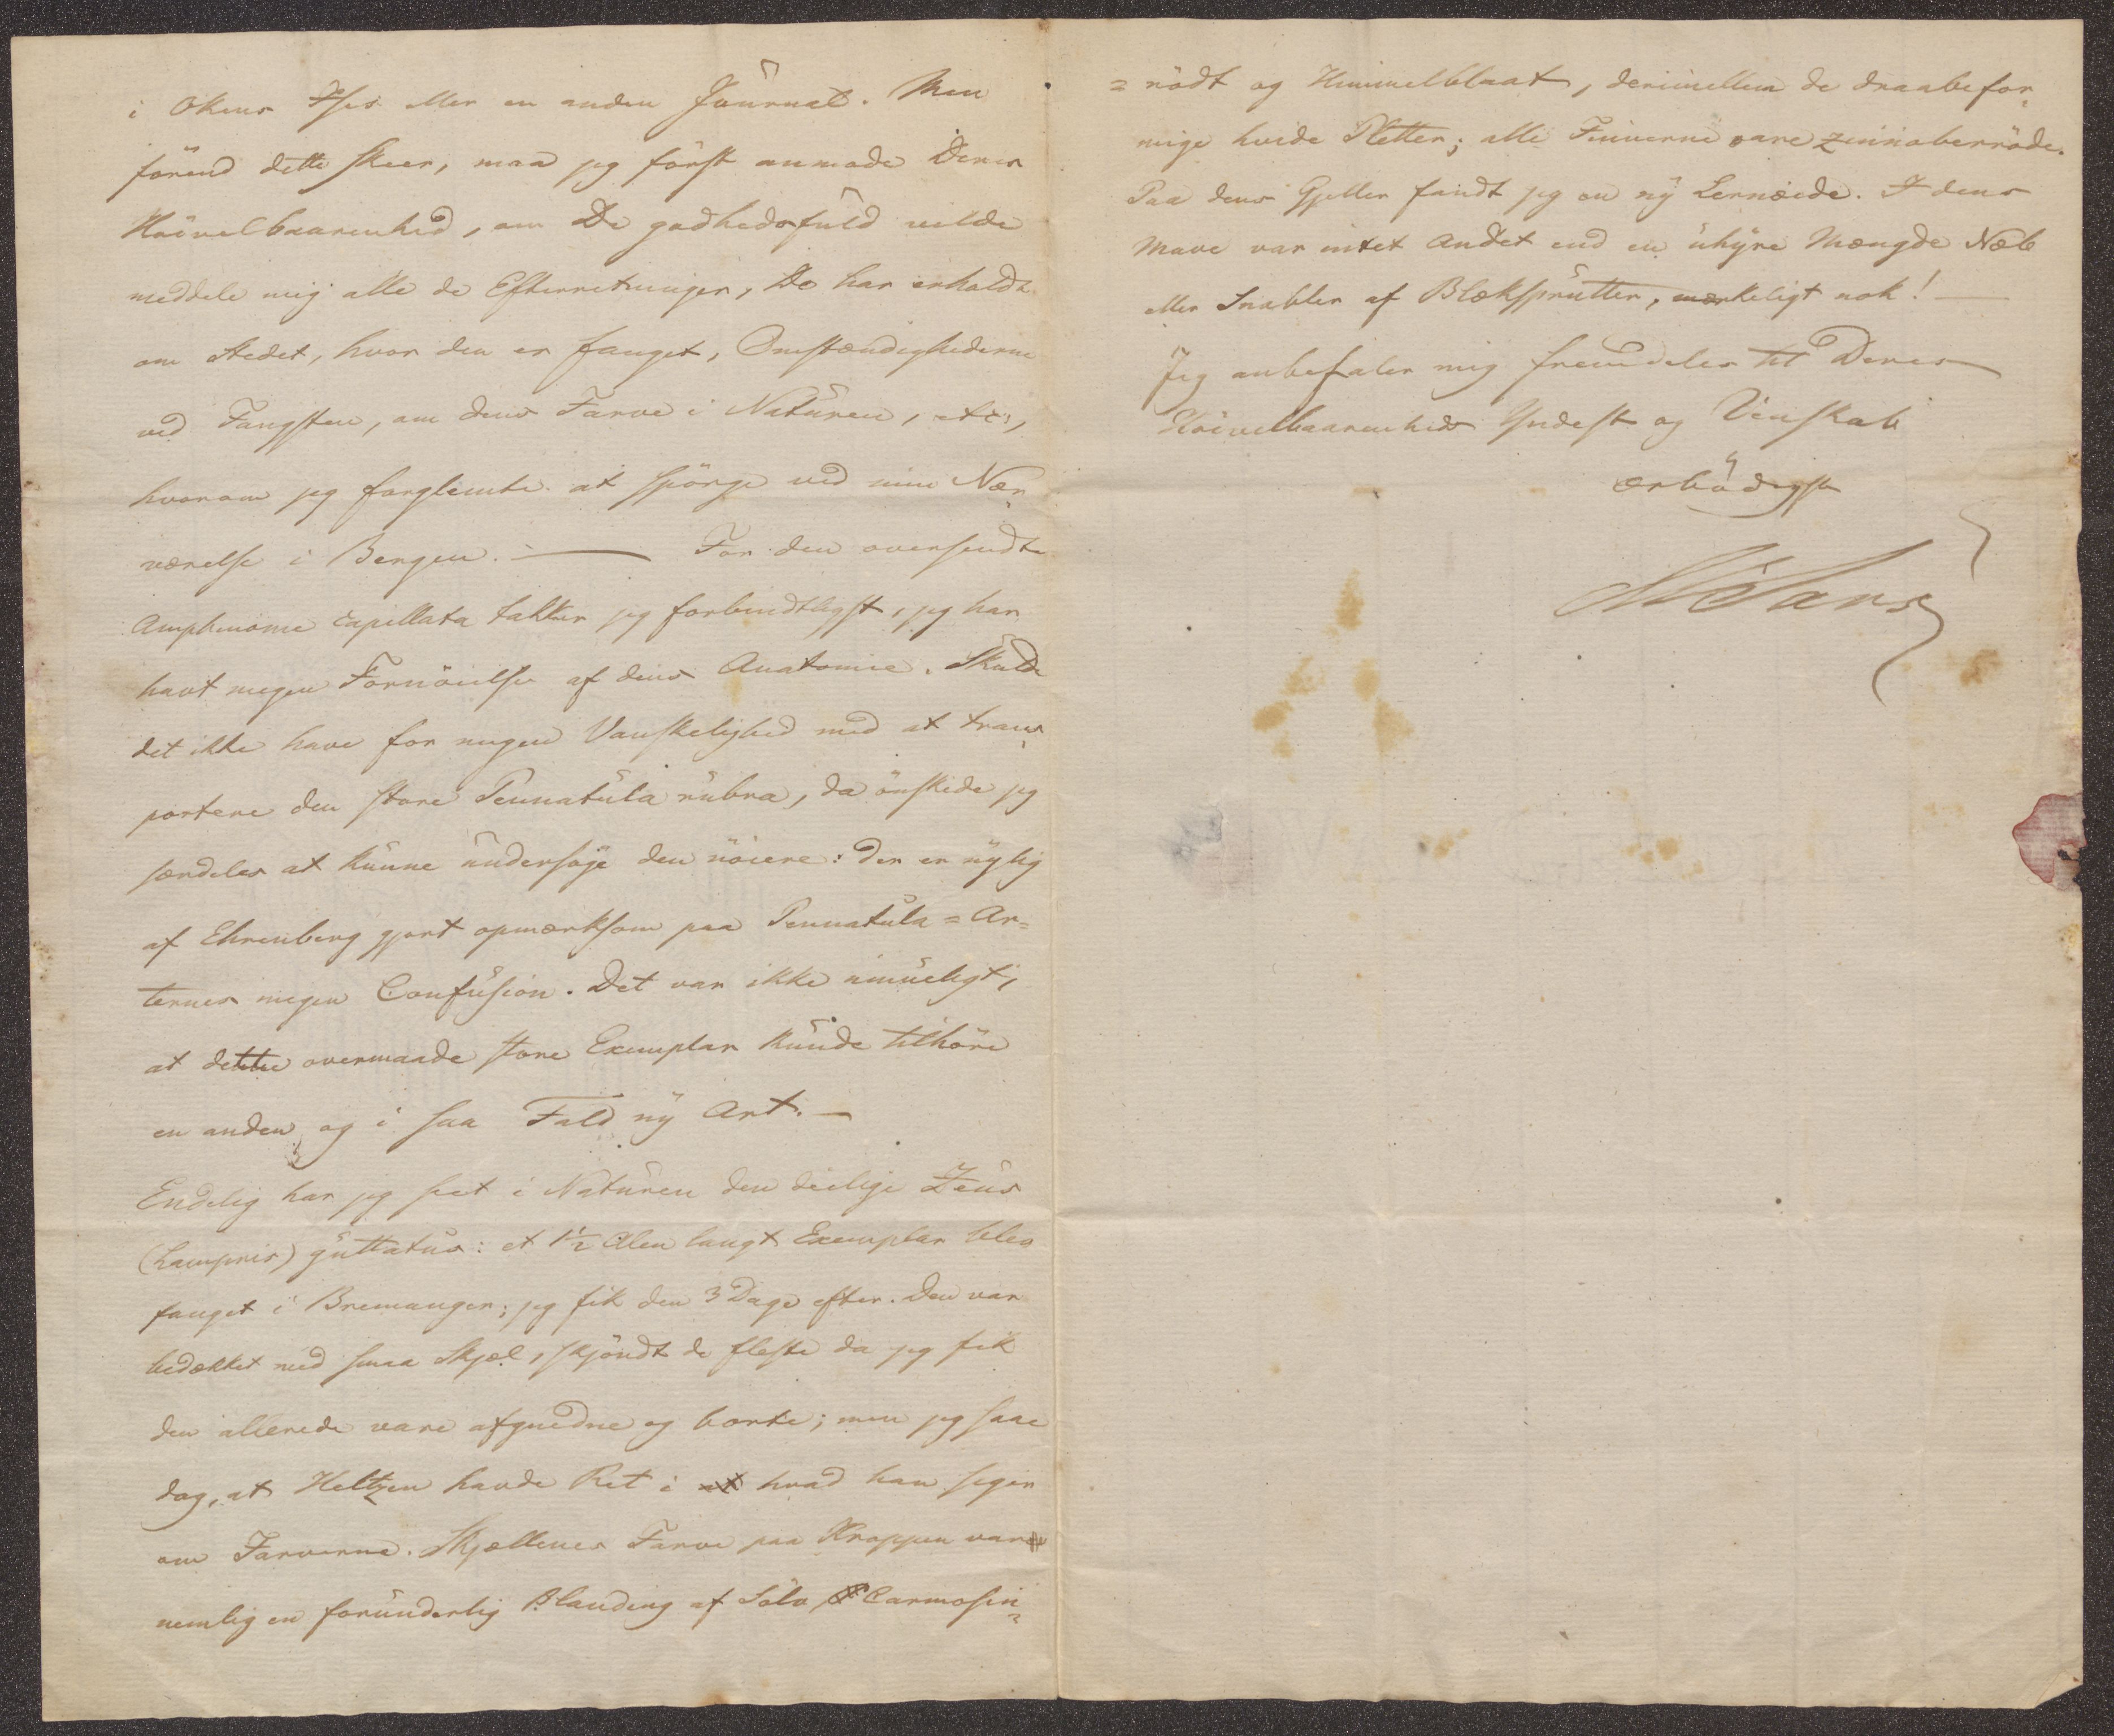 i Okens Isis eller en anden Journal. Men
förend dette skeer, maa jeg först anmode Deres
Höivelbaarenhed, om De godhedsfuld vilde
meddele mig alle de Efterretninger, De har erholdt
om Stedet, hvor den er fanget, Omstændighederne
ved Fangsten, om dens Farve i Naturen, etc.,
hvorom jeg forglemte at spörge ved min Nær-
værelse i Bergen. — For den oversendte
Amphinome capillata takker jeg forbindtligst, jeg har
havt megen Fornöielse af dens Anatomie. Skulde
det ikke have for megen Vanskelighed med at trans-
portere den store Pennatula rubra, da önskede jeg
særdeles at kunne undersöge den nöiere: der er nylig
af Ehrenberg gjort opmærksom paa Pennatula=Ar=
ternes megen Confusion. Det var ikke umueligt,
at dette overmaade store Exemplar kunde tilhöre
en anden og i saa Fald ny Art. —
Endelig har jeg seet i Naturen den deilige Zeus
(Lampris) guttatus: et 1½ Alen langt Exemplar blev
fanget i Bremanger; jeg fik den 3 Dage efter. Den var
bedækket med smaa Skjæl, skjöndt de fleste da jeg fik
den allerede vare afgnedne og borte; men jeg saae
dog, at Heltzen havde Ret i at hvad han siger
om Farverne. Skjællenes Farve paa Kroppen var
nemlig en forunderlig Blanding af Sölv, Carmosin-
=rödt og Himmelblaat, derimellem de draabefor-
mige hvide Pletter; alle Finnerne vare zinnoberröde.
Paa dens Gjeller fandt jeg en ny Lernæide. I dens
Mave var intet Andet end en uhyre Mængde Næb
eller Snabler af Blæksprutter, mærkeligt nok! —
Jeg anbefaler mig fremdeles til Deres
Höivelbaarenheds Yndest og Venskab
ærbödigst
M Sars